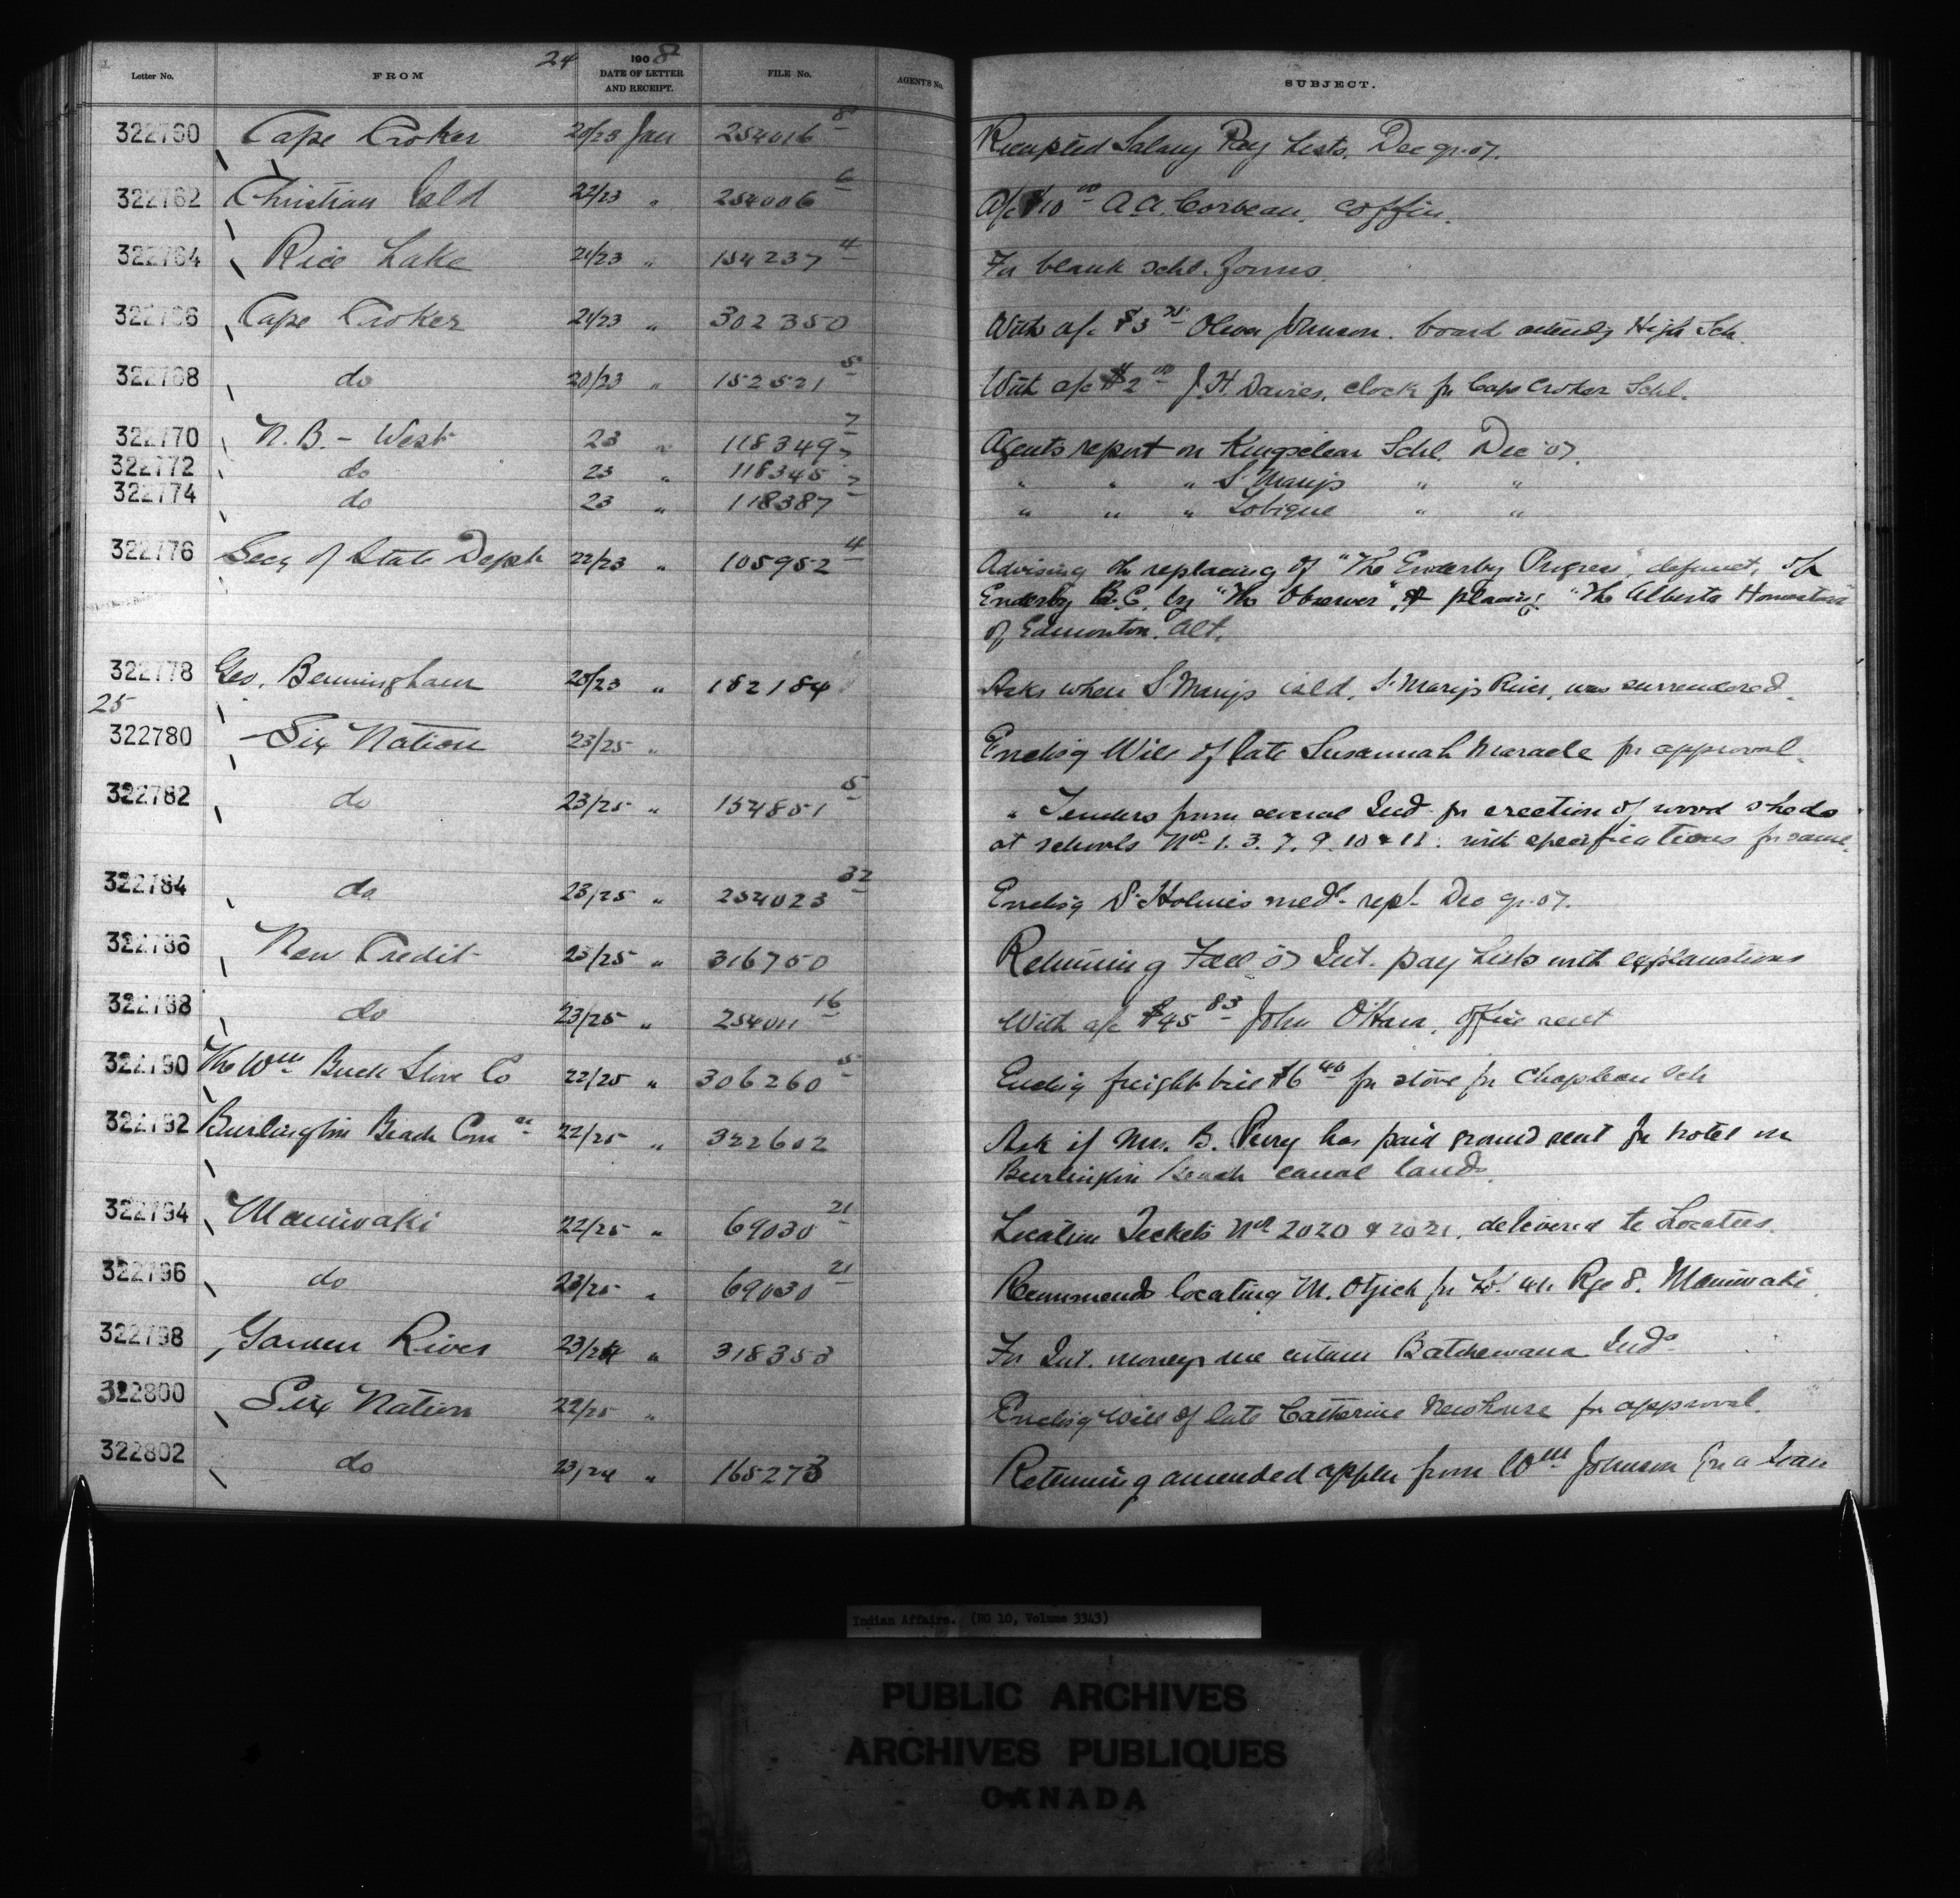 24
Letter No. FROM 1908 DATE OF LETTER AND RECEIPT. FILE No. AGENT'S No. SUBJECT.
322760 Cape Croker 20/23 Jan 254016 8 Receipted Salary Pay Lists. Dec qr. 07.
322762 Christian Isld 22/23 " 254006 6 A/c $10 00 A.A. Corbeau, coffin.
322764 Rice Lake 21/23 " 154237 4 For blank schl. forms.
322766 Cape Croker 21/23 " 302350 With a/c $3 75 Oliver Johnson. board attendg High Sch.
322768 do 20/23 " 152521 5 With a/c $2 00 J.H. Davies, clock for Cape Croker Schl.
322770 N.B. - West 23 " 118349 7 Agents report on Kingsclear Schl. Dec '07.
322772 do 23 " 118348 7 " " " St Marys " "
322774 do 23 " 118387 7 " " " Tobique " "
322776 Secy of State Dept 22/23 " 105952 4 Advising the replacing of "The Enderby Progress", defunct, of
Enderby B.C. by "The Observer", & placing "The Alberta Homestead"
of Edmonton. Alt.
322778 Geo. Bermingham 20/23 " 182184 Asks when St Marys isld, St Marys River, was surrendered.
25
322780 Six Nation 23/25 " Enclsg Will of late Susannah Maracle for approval.
322782 do 23/25 " 154851 5 " Tenders from several Inds for erection of wood sheds
at schools Nos 1. 3. 7. 9. 10 & 11. with specifications for same.
322784 do 23/25 " 254023 32 Enclsg Dr Holmes medl. rept. Dec qr. 07.
322786 New Credit 23/25 " 316750 Returning Fall 07 Int. pay Lists with explanations
322788 do 23/25 " 254011 16 With a/c $45 83 John O'Hara, office rent
322790 The Wm Buck Stove Co 22/25 " 306260 5 Enclsg freight bill $6 40 for stove for Chapleau Sch
322792 Burlington Beach Comn 22/25 " 322602 Ask if Mrs. B. Perry has paid ground rent for hotel on
Burlington Beach canal lands.
322794 Maniwaki 22/25 " 69030 21 Location Tickets Nos 2020 & 2021, delivered to Locatees.
322796 do 23/25 " 69030 21 Recommends locating M. Otjick for Lot Rge 8. Maniwaki.
322798 Garden River 23/24 " 318353 For Int. moneys due certain Batchewana Inds
322800 Six Nation 22/25 " Enclsg Will of late Catherine Newhouse for approval.
322802 do 23/24 " 165273 Returning amended appln from Wm Johnson for a loan
Indian Affairs. (RG 10, Volume 3343)
PUBLIC ARCHIVES
ARCHIVES PUBLIQUES
CANADA